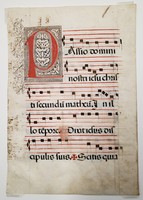 Passio domini
nostri iesu chris
ti secundū matheū, In il
lo tēpore. Dixit iesus dis
cipulis suis. Scitis quia